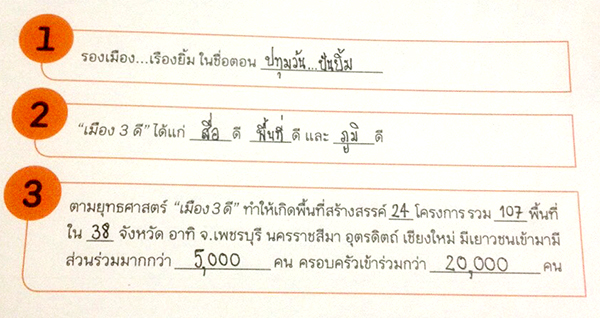 1
รองเมือง...เรืองยิ้ม ในชื่อตอน ปทุมวัน...ปันยิ้ม
2
“เมือง 3 ดี” ได้แก่ สื่อ ดี พื้นที่ ดี และ ภูมิ ดี
3
ตามยุทธศาสตร์ “เมือง 3 ดี” ทำให้เกิดพื้นที่สร้างสรรค์ 24 โครงการ รวม 107 พื้นที่
ใน 38 จังหวัด อาทิ จ.เพชรบุรี นครราชสีมา อุตรดิตถ์ เชียงใหม่ มีเยาวชนเข้ามามี
ส่วนร่วมมากกว่า 5,000 คน ครอบครัวเข้าร่วมกว่า 20,000 คน